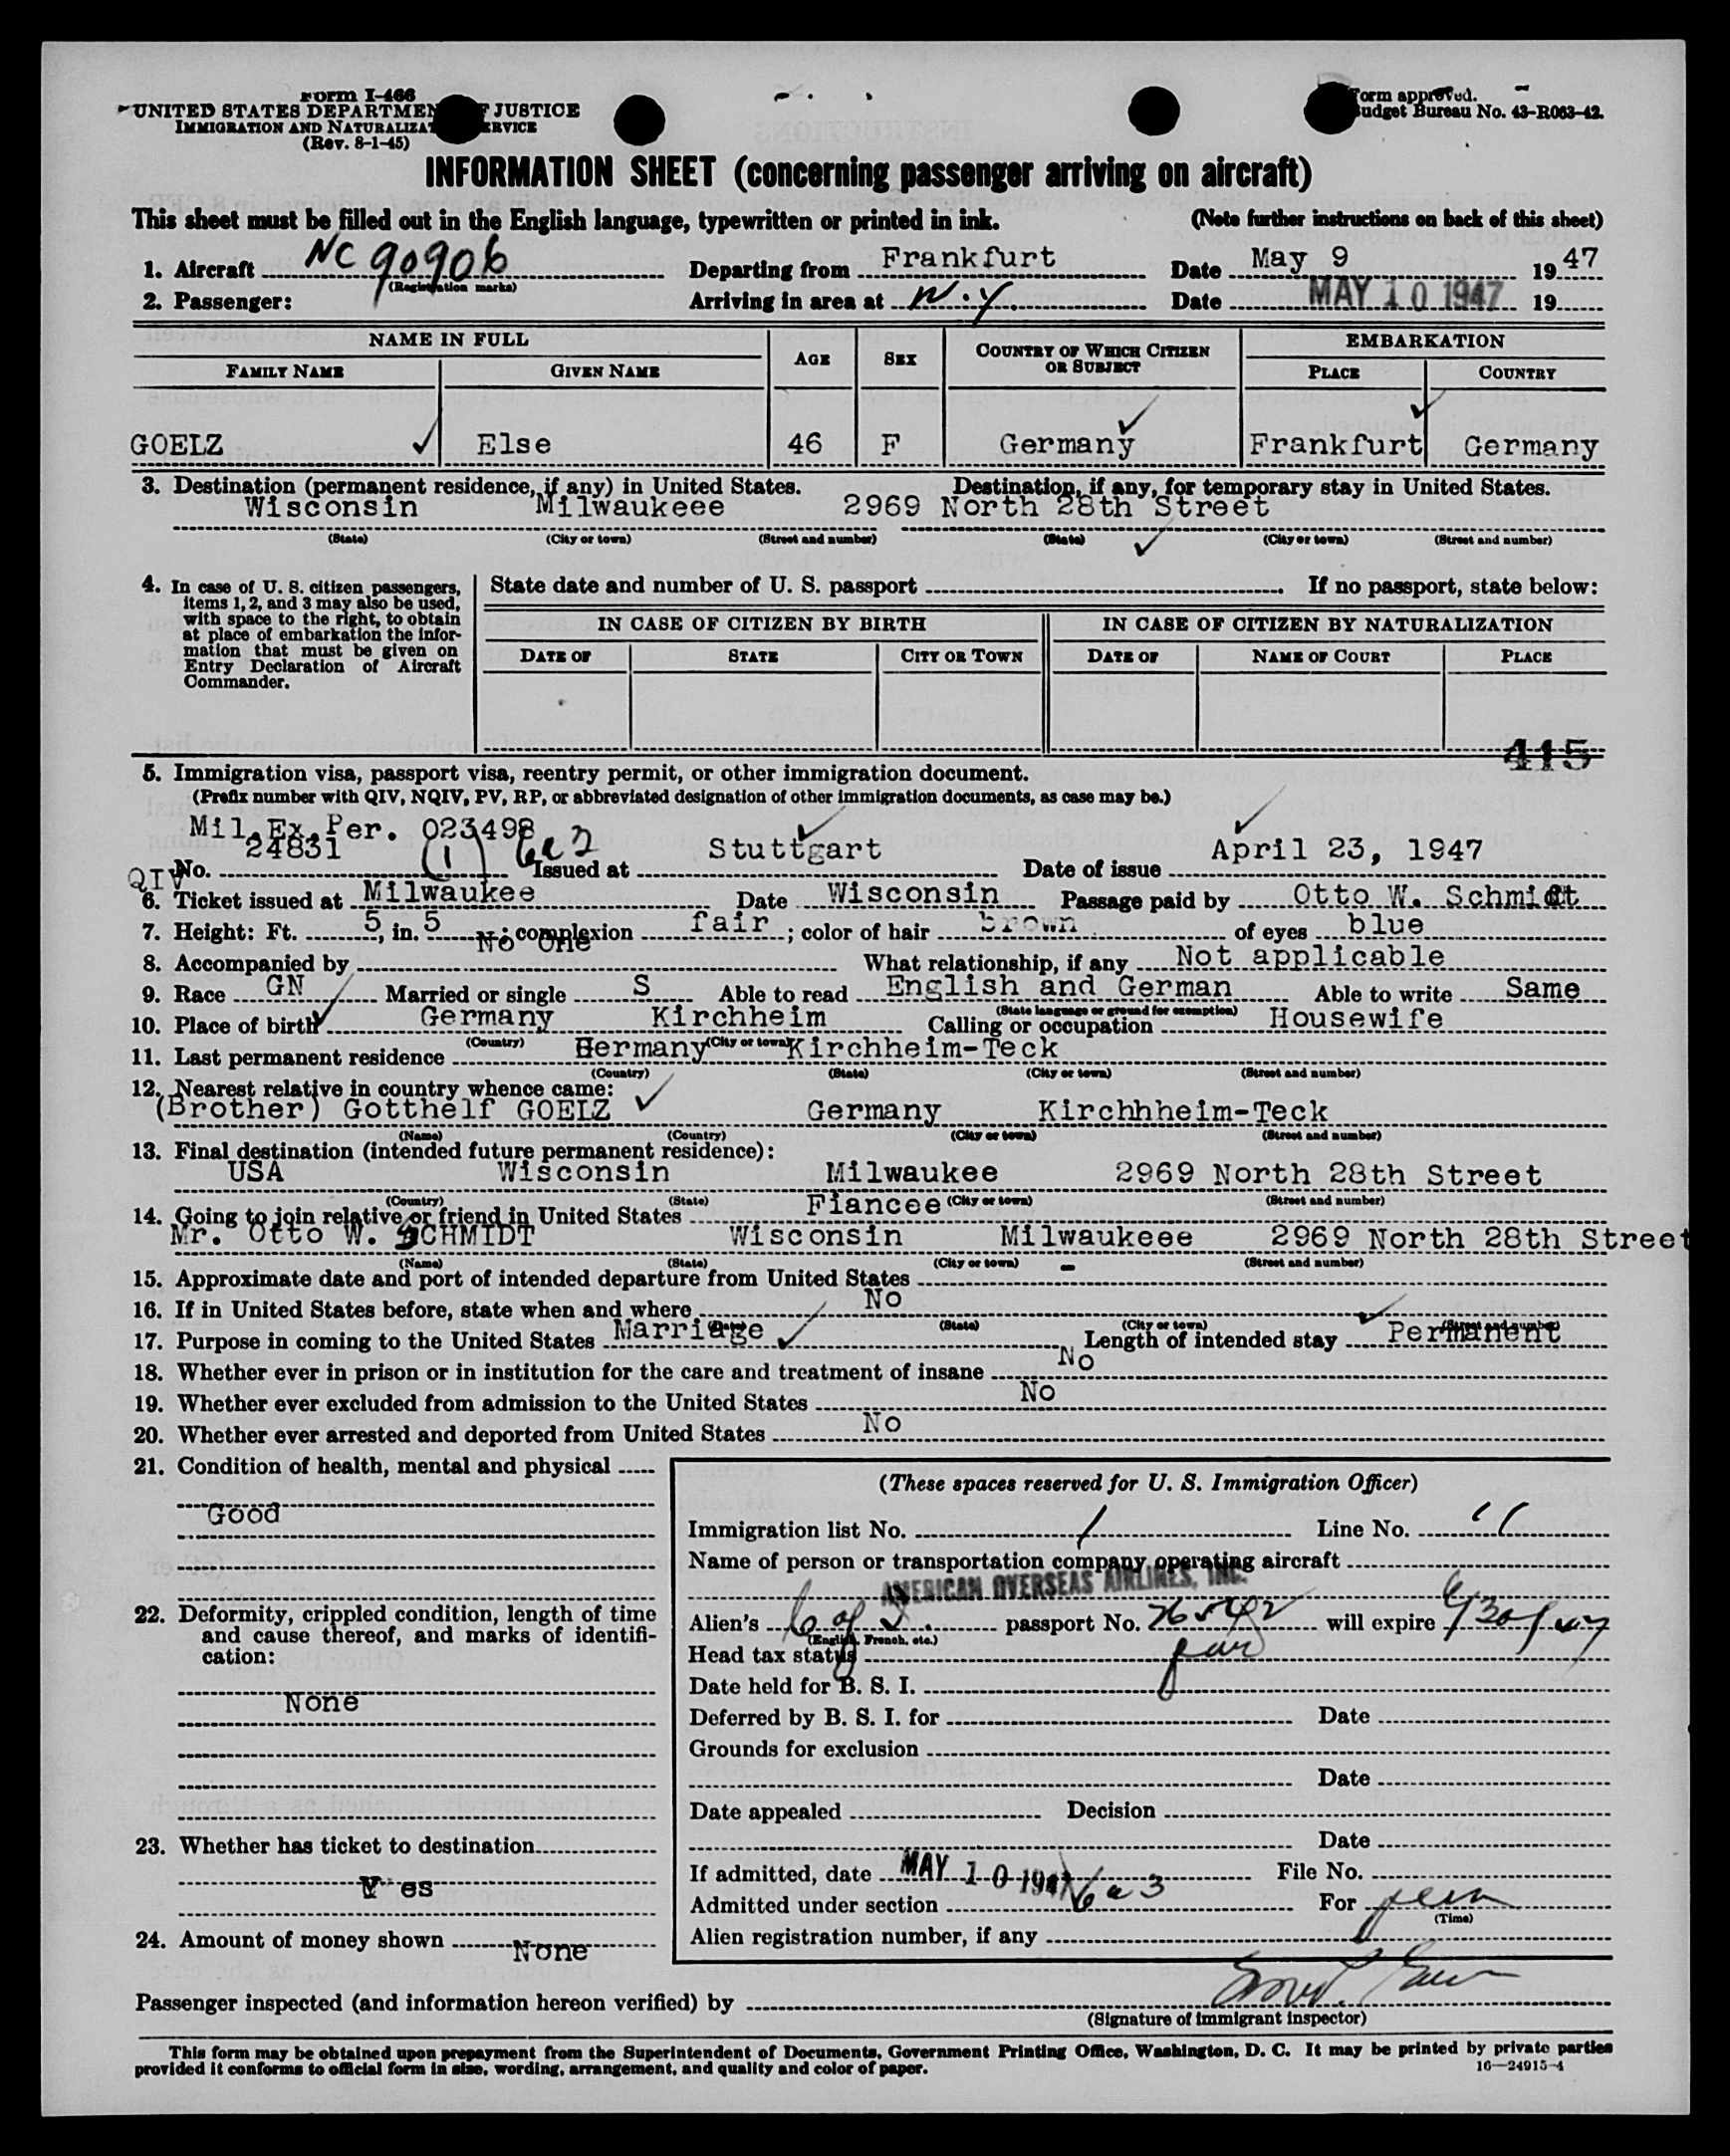 Form I-466
UNITED STATES DEPARTMENT OF JUSTICE
IMMIGRATION AND NATURALIZATION SERVICE
(Rev. 8-1-45)
Form approved.
Budget Bureau No. 43-R063-42.
INFORMATION SHEET (concerning passenger arriving on aircraft)
This sheet must be filled out in the English language, typewritten or printed in ink. (Note further instructions on back of this sheet)
1. Aircraft NC 90906 Departing from Frankfurt Date May 9 1947
(Registration marks)
2. Passenger: Arriving in area at N.Y. Date MAY 10 1947 19
NAME IN FULL AGE SEX COUNTRY OF WHICH CITIZEN OR SUBJECT EMBARKATION
FAMILY NAME GIVEN NAME PLACE COUNTRY
GOELZ Else 46 F Germany Frankfurt Germany
3. Destination (permanent residence, if any) in United States. Destination, if any, for temporary stay in United States.
Wisconsin Milwaukeee 2969 North 28th Street
(State) (City or town) (Street and number) (State) (City or town) (Street and number)
4. In case of U. S. citizen passengers, items 1, 2, and 3 may also be used, with space to the right, to obtain at place of embarkation the information that must be given on Entry Declaration of Aircraft Commander.
State date and number of U. S. passport If no passport, state below:
IN CASE OF CITIZEN BY BIRTH IN CASE OF CITIZEN BY NATURALIZATION
DATE OF STATE CITY OR TOWN DATE OF NAME OF COURT PLACE
415
5. Immigration visa, passport visa, reentry permit, or other immigration document.
(Prefix number with QIV, NQIV, PV, RP, or abbreviated designation of other immigration documents, as case may be.)
Mil.Ex.Per. 023498
QIV No. 24831 (1) 6e2 Issued at Stuttgart Date of issue April 23, 1947
6. Ticket issued at Milwaukee Date Wisconsin Passage paid by Otto W. Schmidt
7. Height: Ft. 5, in. 5; complexion fair; color of hair brown of eyes blue
8. Accompanied by No One What relationship, if any Not applicable
9. Race GN Married or single S Able to read English and German Able to write Same
(State language or ground for exemption)
10. Place of birth Germany Kirchheim Calling or occupation Housewife
(Country) (City or town)
11. Last permanent residence Germany Kirchheim-Teck
(Country) (State) (City or town) (Street and number)
12. Nearest relative in country whence came:
(Brother) Gotthelf GOELZ Germany Kirchhheim-Teck
(Name) (Country) (City or town) (Street and number)
13. Final destination (intended future permanent residence):
USA Wisconsin Milwaukee 2969 North 28th Street
(Country) (State) (City or town) (Street and number)
14. Going to join relative or friend in United States Fiancee
Mr. Otto W. SCHMIDT Wisconsin Milwaukeee 2969 North 28th Street
(Name) (State) (City or town) (Street and number)
15. Approximate date and port of intended departure from United States -
16. If in United States before, state when and where No
(Date) (State) (City or town) (Street and number)
17. Purpose in coming to the United States Marriage Length of intended stay Permanent
18. Whether ever in prison or in institution for the care and treatment of insane No
19. Whether ever excluded from admission to the United States No
20. Whether ever arrested and deported from United States No
21. Condition of health, mental and physical
Good
22. Deformity, crippled condition, length of time and cause thereof, and marks of identification:
None
23. Whether has ticket to destination
Yes
24. Amount of money shown None
(These spaces reserved for U. S. Immigration Officer)
Immigration list No. 1 Line No. 11
Name of person or transportation company operating aircraft
AMERICAN OVERSEAS AIRLINES, INC.
Alien's C of I. passport No. 76542 will expire
(English, French, etc.)
Head tax status
Date held for B. S. I.
Deferred by B. S. I. for Date
Grounds for exclusion
Date
Date appealed Decision
Date
If admitted, date MAY 10 1947 File No.
Admitted under section 6a3 For perm
(Time)
Alien registration number, if any
Passenger inspected (and information hereon verified) by
(Signature of immigrant inspector)
This form may be obtained upon prepayment from the Superintendent of Documents, Government Printing Office, Washington, D. C. It may be printed by private parties
provided it conforms to official form in size, wording, arrangement, and quality and color of paper. 16—24915-4